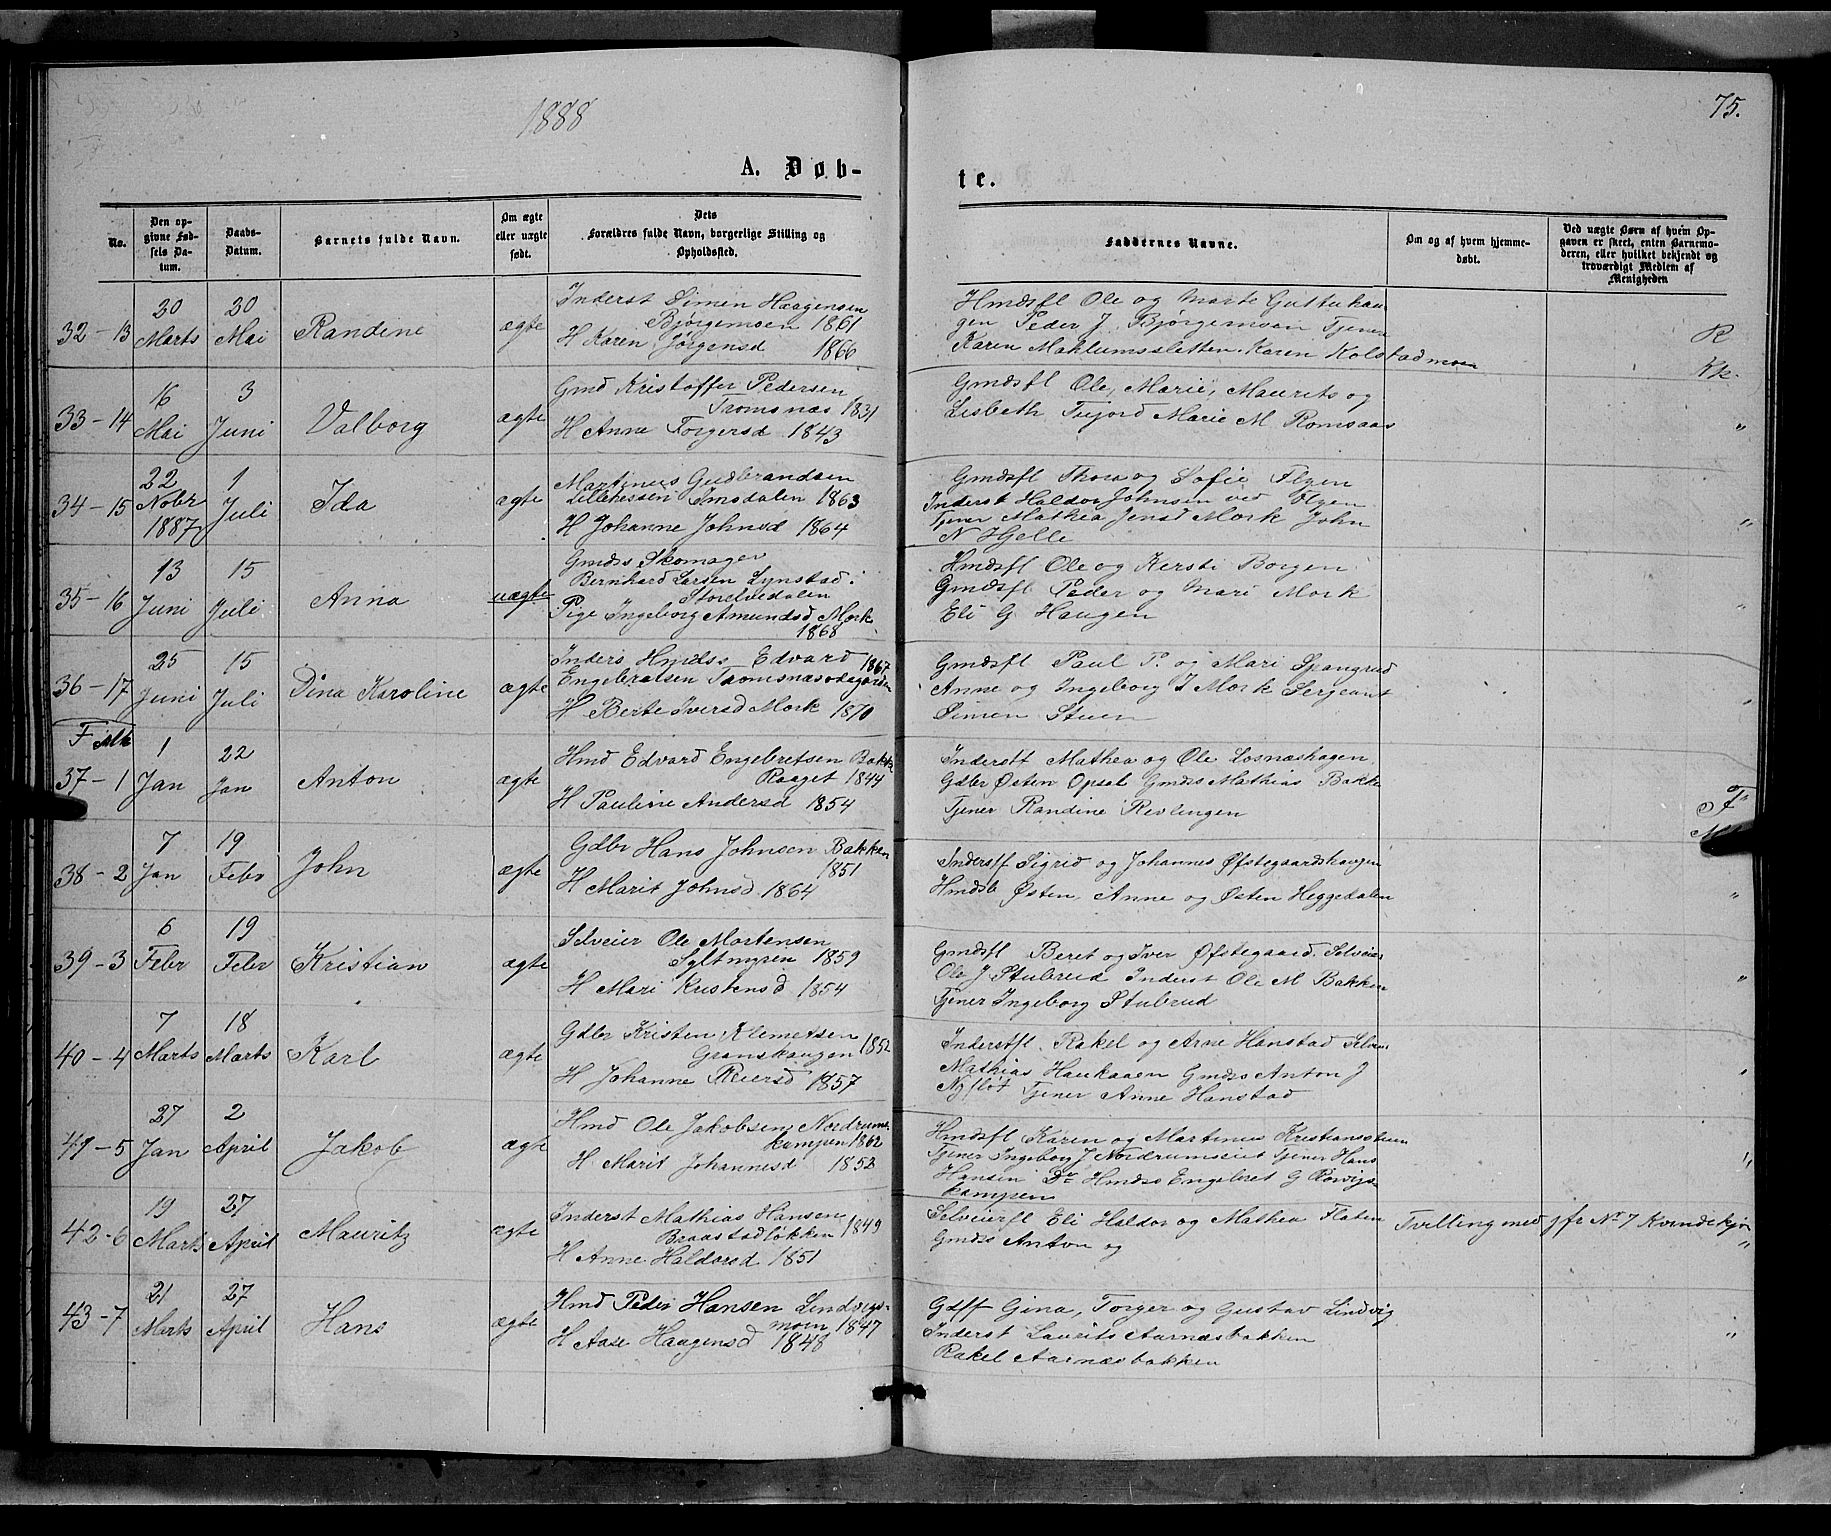 1888
75.
A. Døb-
te.
No.
Den op-
givne Fød-
sels Da-
tum.
Daabs-
Datum.
Barnets fulde Navn.
Om ægte
eller uægte
født.
Dets
Forældres fulde Navn, borgerlige Stilling og
Opholdssted.
Faddernes Navne.
Om og af hvem hjemme-
døbt.
Ved uægte Børn af hvem Op-
gaven er skeet, enten Barnemo-
deren, eller hvilket bekjendt og
troværdigt Medlem af
Menigheden
32-13
20
Marts
20
Mai
Randine
ægte
Inderst Simen Haagensen
Bjørgemoen 1861
H Karen Jørgensd 1866
Hmdsfl Ole og Marte Guttuhau
gen Peder J. Bjørgemoen Tjener
Karen Maklumssletten. Karen Kolstadmoen
R
Kk.
33-14
16
Mai
3
Juni
Valborg
ægte
Gmd Kristoffer Pedersen
Tromsnæs 1831
H Anne Torgersd 1843
Gmdsfl Ole, Marie, Maurits og
Lisbeth Marie M Romsaas
"
34-15
22
Nobr
1887
1
Juli
Ida
ægte
Martinus Gudbrandsen
Imsdalen 1863
H Johanne Johnsd 1864
Gmdsfl Thora og Sofie Flyen
Inderst Haldor Johnsen ved Flyen
Tjener Mathea Jensd Mork John
N Hjelle
"
35-16
13
Juni
15
Juli
Anna
uægte
Gmds Skomager
Bernhard Larsen Lynstad i
Storelvedalen
Pige Ingeborg Amundsd Mork
1868
Hmdsfl Ole og Kersti Borgen
Gmdsfl Peder og Mari Mork
Eli G Haugen
"
36-17
25
Juni
15
Juli
Dina Karoline
ægte
Inders Hmds Edvard 1867
Engebretsen Tromsnæsødegarden
H Berte Iversd Mork 1870
Gmdsfl Paul P. og Mari Spangrud
Anne og Ingeborg I Mork Sergeant
Simen Stuen
"
F
37-1
1
Jan
22
Jan
Anton
ægte
Hmd Edvard Engebretsen Bakke
Raaget 1844
H Pauline Andersd 1854
Inderstf Mathea og Ole Losnæshagen
Gdbr Østen Opsal Gmds Mathias Bakke
Tjener Randine Revlingen
F
38-2
7
Jan
19
Febr
John
ægte
Gdbr Hans Johnsen Bakken
1851
H Marit Johnsd 1864
Inderstf Sigrid og Johannes Øfstegaardshaugen
Hmdsb Østen, Anne og Østen Heggedalen
"
39-3
6
Febr
19
Febr
Kristian
ægte
Selveier Ole Mortensen
Syltmyren 1859
H Mari Kristensd 1854
Gmdsfl Beret og Iver Øfstegaard. Selveier
Ole J Stubrud Inderst Ole M Bakken
Tjener Ingeborg Stubrud
"
40-4
7
Marts
18
Marts
Karl
ægte
Gdbr Kristen Klemetsen
Granshaugen 1852
H Johanne Reiersd 1857
Inderstfl. Rakel og Arne Hanstad Selvei
Mathias Haukaaen Gmds Anton J
Nyfløt Tjener Anne Hanstad
"
41-5
27
Jan
2
April
Jakob
ægte
Hmd Ole Jakobsen Nordrums-
kampen 1862
H Marit Johannesd 1852
Hmdsfl Karen og Martinus Kristiansstuen
Tjener Ingeborg J Nordrumseiet Tjener Hans
Hansen Do Hmds Engebret G Rovigs-
kampen
"
42-6
19
Marts
27
April
Mauritz
ægte
Inderst Mathias Hansen
Braastadløkken 1849
H Anne Haldorsd 1851
Selveierfl Eli Haldor og Mathea Flaten
Gmds Anton og
Tvilling med jfr No 7 Kvindekjøn
"
43-7
21
Marts
27
April
Hans
ægte
Hmd Peder Hansen Lindvigs-
moen 1847
H Aase Haagensd 1848
Gdff Gina, Torger og Gustav Lindvig
Inderst Laurits Aarnæsbakken
Rakel Aarnæsbakken
"